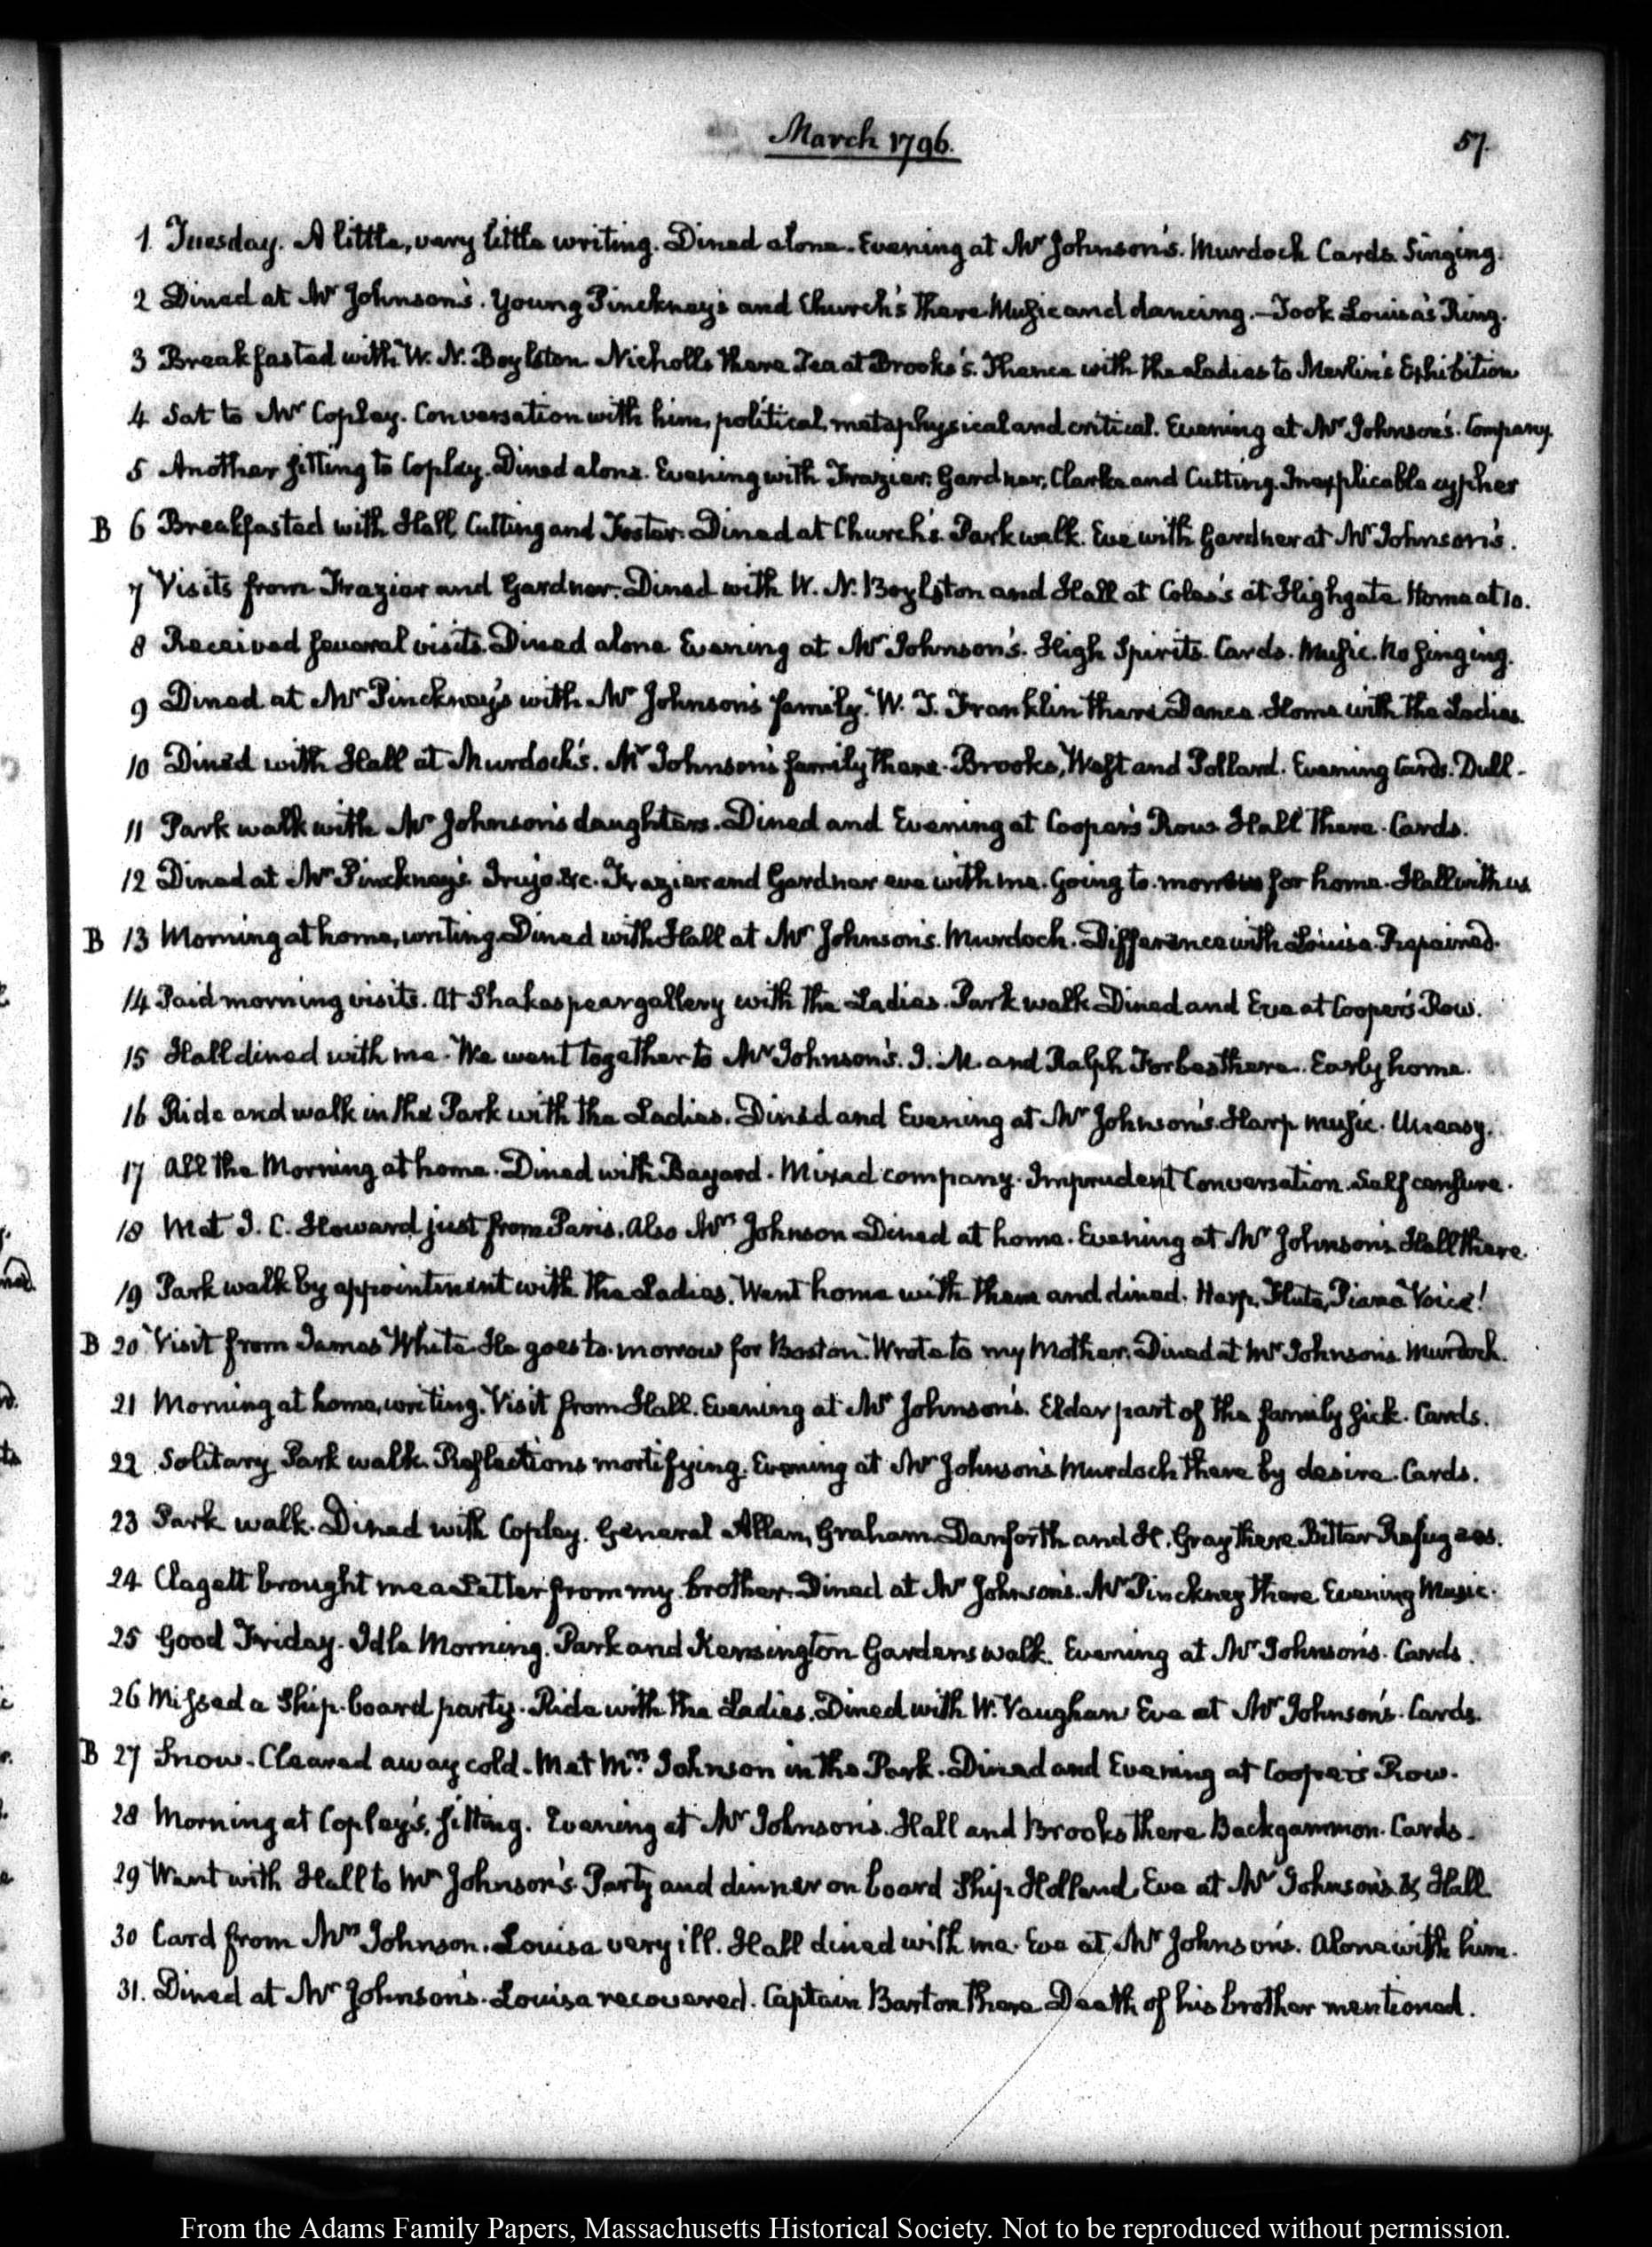 March 1796.
57.
1. Tuesday. A little, very little writing. Dined alone. Evening at Mr Johnson's. Murdock Cards. Singing.
2 Dined at Mr Johnson's. Young Pinckney's and Church's there. Music and dancing.—Took Louisa's Ring.
3 Breakfasted with W. N. Boylston. Nicholls there Tea at Brooks's. Thence with the Ladies to Merlin's Exhibition
4 Sat to Mr Copley. Conversation with him, political, metaphysical and critical. Evening at Mr Johnson's. Company.
5 Another sitting to Copley. Dined alone. Evening with Frazier, Gardner, Clarke and Cutting. Inexplicable cypher
B 6 Breakfasted with Hall, Cutting and Foster. Dined at Church's. Park walk. Eve with Gardner at Mr Johnson's.
7 Visits from Frazier and Gardner. Dined with W. N. Boylston and Hall at Coles's at Highgate. Home at 10.
8 Received several visits. Dined alone. Evening at Mr Johnson's. High Spirits. Cards. Music. No singing.
9 Dined at Mr Pinckney's with Mr Johnson's family. W. T. Franklin there. Dance. Home with the Ladies.
10 Dined with Hall at Murdock's. Mr Johnson's family there. Brooks, West and Pollard. Evening Cards. Dull-
11 Park walk with Mr Johnson's daughters. Dined and Evening at Cooper's Row. Hall there. Cards.
12 Dined at Mr Pinckney's. Trujo. &c. Frazier and Gardner eve with me. Going to-morrow for home. Hall with us
B 13 Morning at home, writing. Dined with Hall at Mr Johnson's. Murdock. Difference with Louisa. Repaired.
14 Paid morning visits. At Shakespear gallery with the Ladies. Park walk. Dined and Eve at Cooper's Row.
15 Hall dined with me. We went together to Mr Johnson's. J. M. and Ralph Forbes there. Early home.
16 Ride and walk in the Park with the Ladies. Dined and Evening at Mr Johnson's. Harp music. Uneasy.
17 All the Morning at home. Dined with Bayard. Mixed company. Imprudent Conversation. Self censure.
18 Met J. C. Howard just from Paris. Also Mrs Johnson. Dined at home. Evening at Mr Johnson's. Hall there.
19 Park walk by appointment with the Ladies. Went home with them and dined. Harp, Flute, Piano Voice!
B 20 Visit from James White. He goes to-morrow for Boston. Wrote to my Mother. Dined at Mr Johnson's. Murdock.
21 Morning at home, writing. Visit from Hall. Evening at Mr Johnson's. Elder part of the family sick. Cards.
22 Solitary Park walk. Reflections mortifying. Evening at Mr Johnson's Murdock there by desire. Cards.
23 Park walk. Dined with Copley. General Allan, Graham. Danforth and H. Gray there. Bitter Refugees.
24 Clagett brought me a Letter from my brother. Dined at Mr Johnson's. Mr Pinckney there. Evening Music.
25 Good Friday. Idle Morning. Park and Kensington Gardens walk. Evening at Mr Johnson's. Cards.
26 Missed a Ship-board party. Ride with the Ladies. Dined with W. Vaughan Eve at Mr Johnson's. Cards.
B 27 Snow. Cleared away cold. Met Mrs Johnson in the Park. Dined and Evening at Cooper's Row.
28 Morning at Copley's, sitting. Evening at Mr Johnson's. Hall and Brooks there. Backgammon. Cards.
29 Went with Hall to Mr Johnson's. Party and dinner on board Ship Holland Eve at Mr Johnson's. Hall
30 Card from Mrs Johnson. Louisa very ill. Hall dined with me. Eve at Mr Johnson's. Alone with him.
31. Dined at Mr Johnson's. Louisa recovered. Captain Barton there. Death of his brother mentioned.
From the Adams Family Papers, Massachusetts Historical Society. Not to be reproduced without permission.